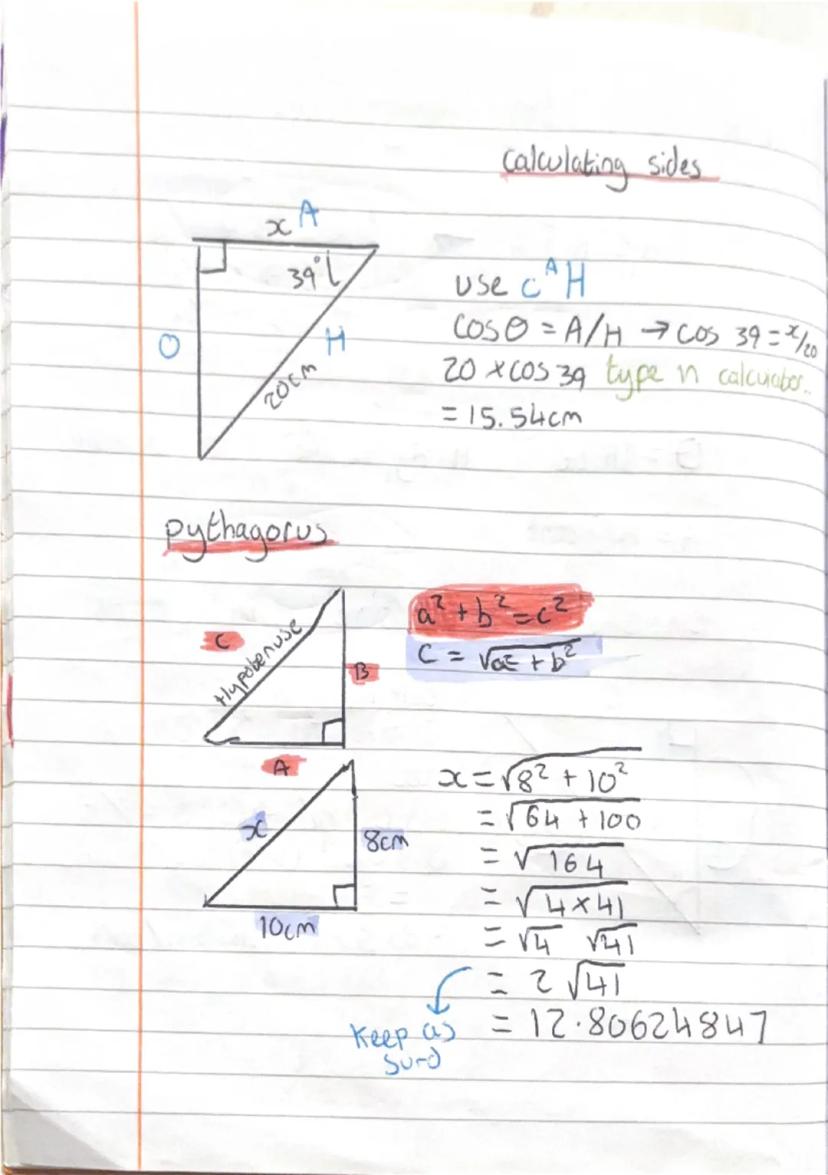 calculating sides
x A
39°
O
H
20cm
use cAH
Cosθ = A/H → cos 39 = x/20
20 × cos 39 type n calcuator..
= 15.54cm
pythagorus
C
Hypotenuse
B
A
a² + b² = c²
C = √a² + b²
x
8cm
10cm
x = √8² + 10²
= √64 + 100
= √164
= √4 × 41
= √4 √41
= 2 √41
= 12.80624847
Keep as
surd